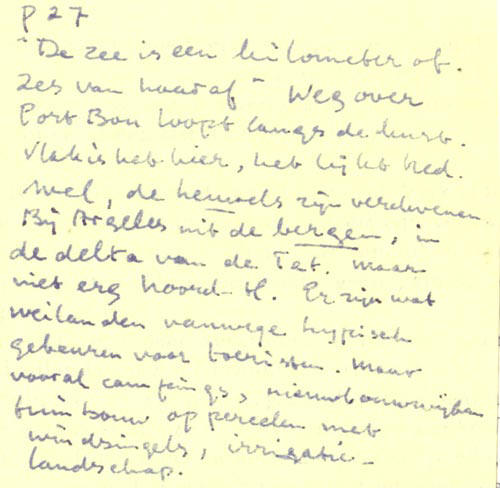 p 27
"De zee is een kilometer of
zes van haar af" Weg over
Port Bou loopt langs de kust.
Vlak is het hier, het lijkt Ned.
wel, de heuvels zijn verdwenen
Bij Argeles uit de bergen, in
de delta van de Tet. Maar
niet erg Noord-H. Er zijn wat
weilanden vanwege hyppisch
gebeuren voor toeristen. Maar
vooral campings, nieuwbouwwijken
tuinbouw op percelen met
windsingels, irrigatie-
landschap.